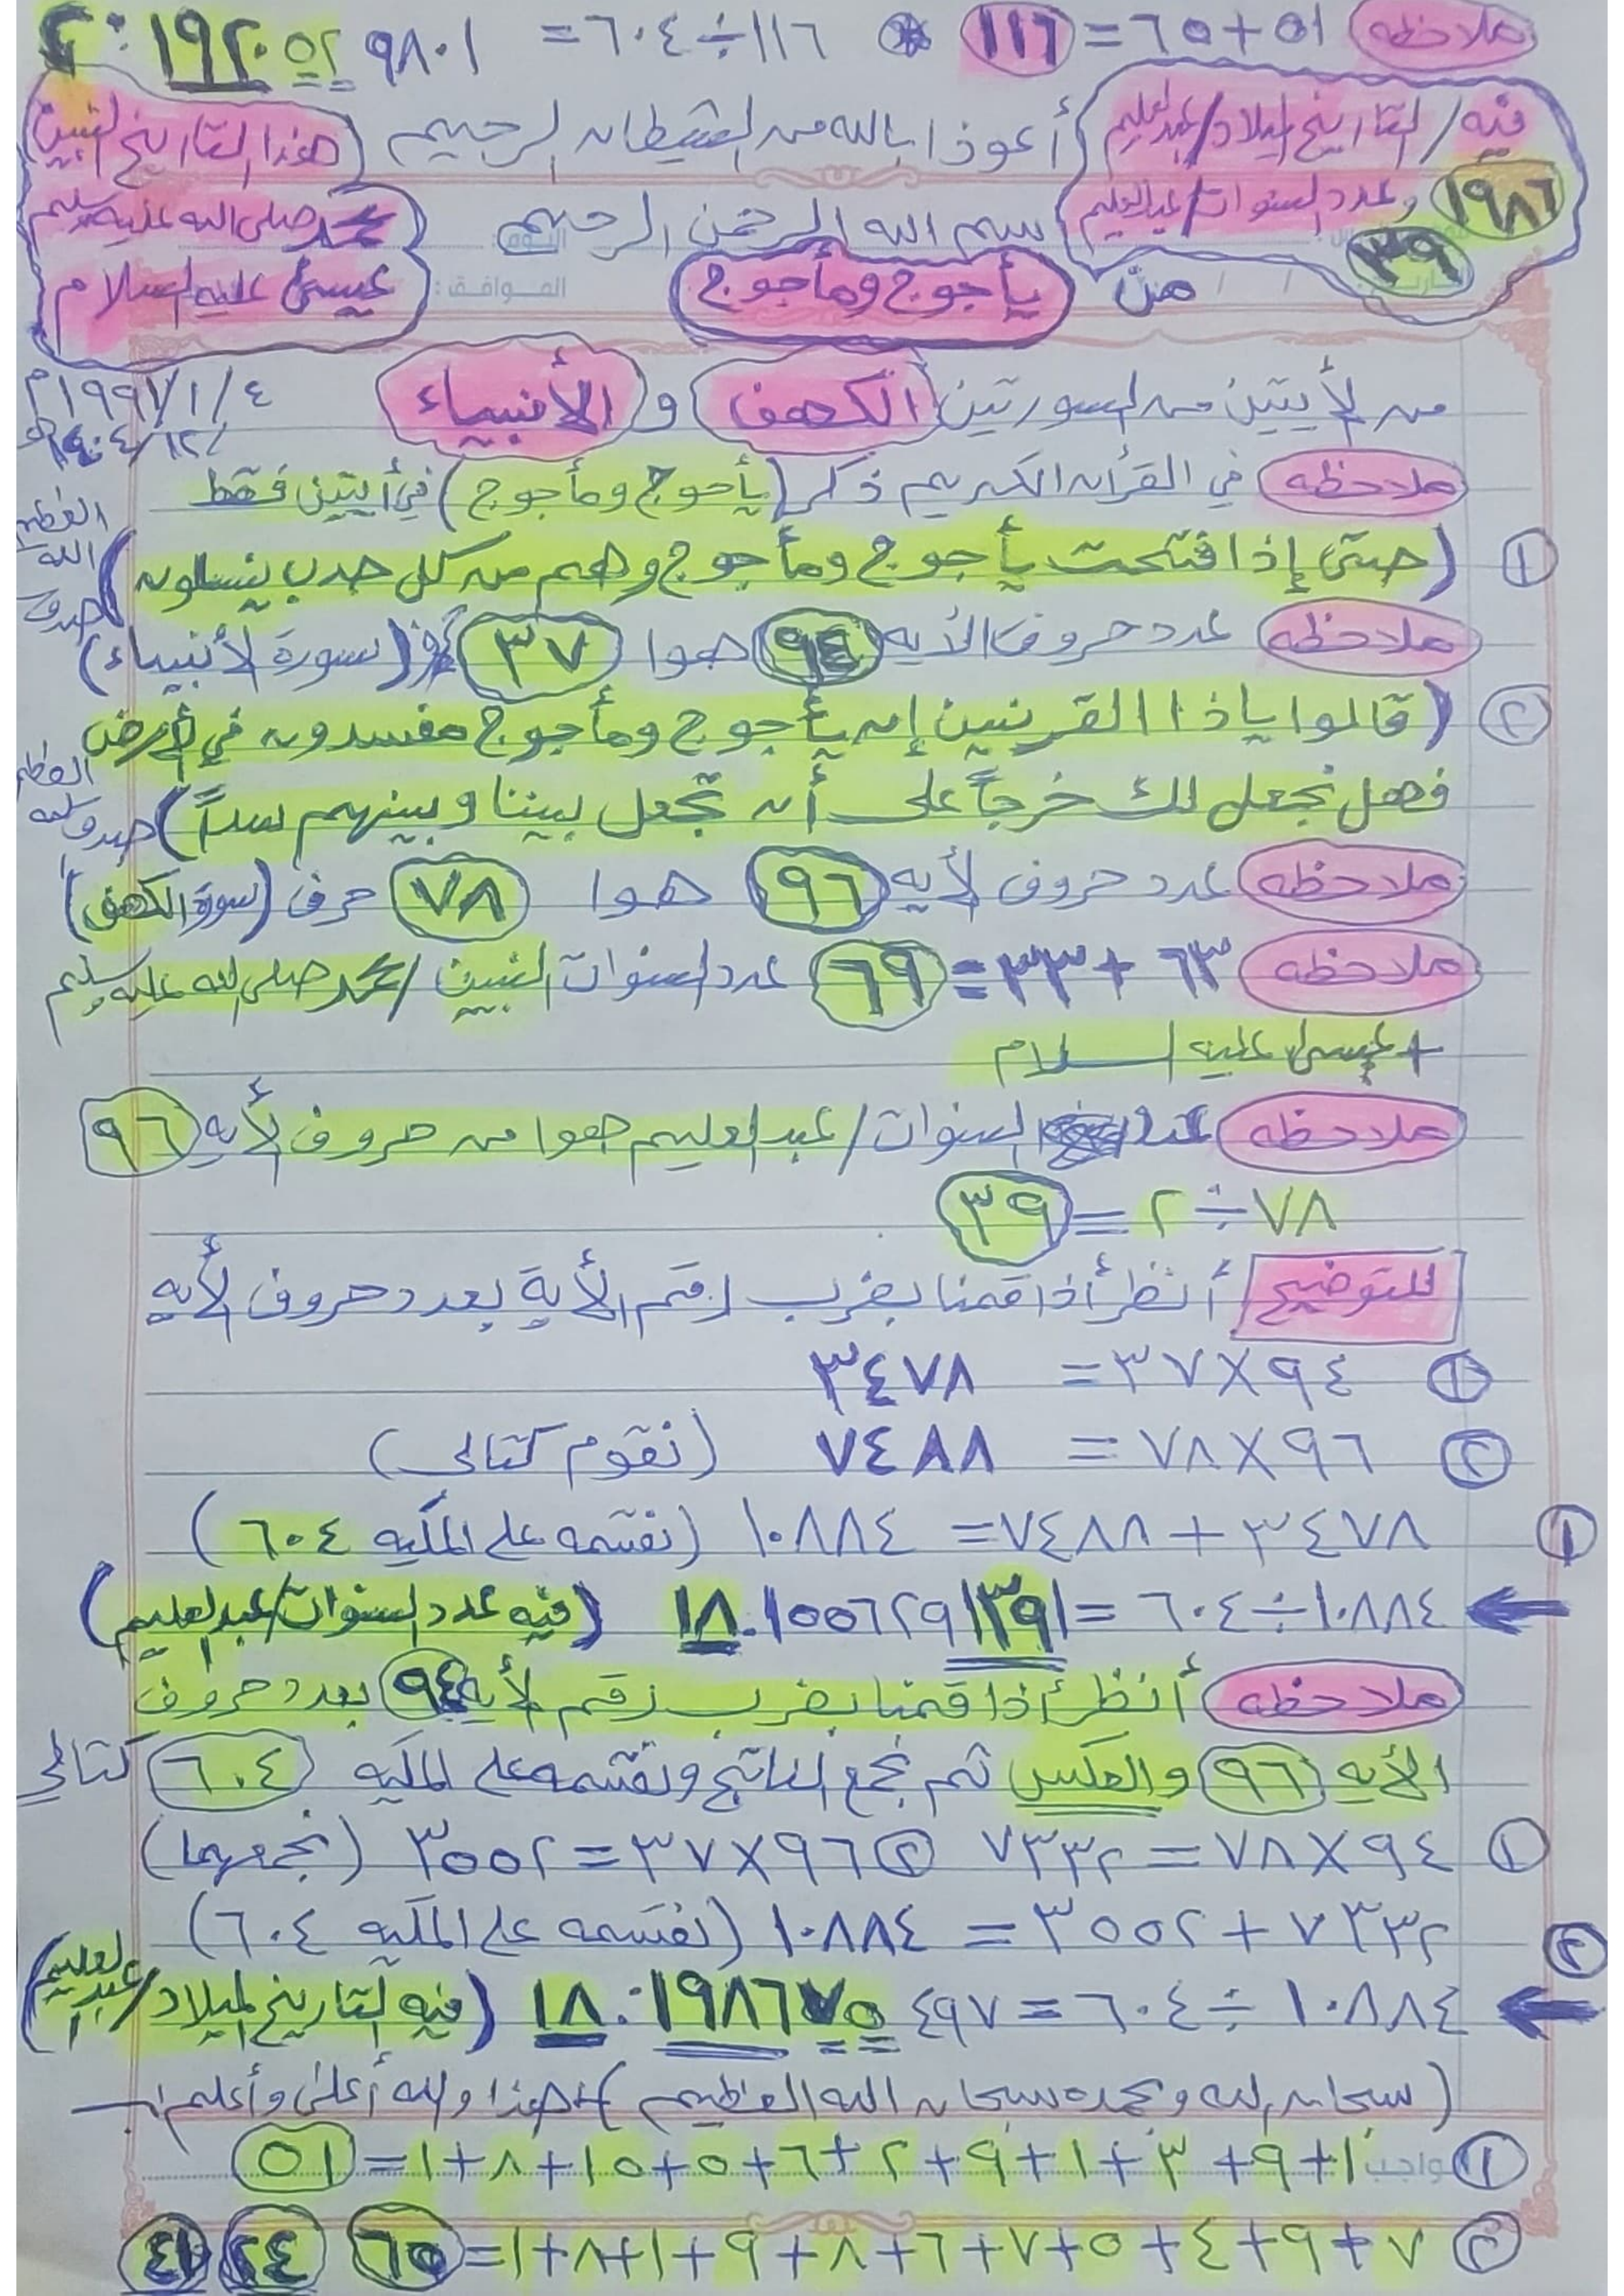 ملاحظه ٥١+٦٥=١١٦ * ١١٦÷٦٠٤= ٠.١٩٢٠٥٢٩٨٠١
فيه/التاريخ الميلاد/عبدالعليم
١٩٨٦
وعدد السنوات/عبدالعليم
٣٩
أعوذ بالله من الشيطان الرجيم
هذا التاريخ النبين
محمد صلى الله عليه وسلم
عيسى عليه السلام
بسم الله الرحمن الرحيم
اليوم:
الموافق:
من يأجوج ومأجوج
من لأيتين من السورتين (الكهف) و (الأنبياء)
١٩٩١/١/٤م
ملاحظه في القرأن الكريم ذكر (يأجوج ومأجوج) في أيتين فقط
١ (حتى إذا فتحت يأجوج ومأجوج وهم من كل حدب ينسلون) صدق الله العظيم
ملاحظه عدد حروف الأيه ٩٤ هوا ٣٧ حرف (سورة لأنبياء)
٢ (قالوا ياذا القرنين إن يأجوج ومأجوج مفسدون في لأرض
فهل نجعل لك خرجاً على أن تجعل بيننا وبينهم سداً) صدق الله العظيم
ملاحظه عدد حروف لأيه ٩٦ هوا ٧٨ حرف (سورة الكهف)
ملاحظه ٦٣+٣٣=٦٩ عدد السنوات النبين/محمد صلى الله عليه وسلم
+ عيسى عليه السلام
ملاحظه عدد السنوات/عبدالعليم هوا من حروف لأيه ٩٦
٧٨÷٢=٣٩
للتوضيح أنظر أذا قمنا بضرب رقم الأية بعدد حروف لأيه
١ ٩٤×٣٧= ٣٤٧٨
٢ ٩٦×٧٨= ٧٤٨٨ (نقوم كتالي)
١ ٣٤٧٨+٧٤٨٨=١٠٨٨٤ (نقسمه على الملكيه ٦٠٤)
١٠٨٨٤÷٦٠٤= ١٨.١٥٥٦٢٩١٣٩١ (فيه عدد السنوات/عبدالعليم)
ملاحظه أنظر أذا قمنا بضرب رقم لأيه ٩٤ بعدد حروف
الأيه ٩٦ والعكس ثم نجمع الناتج ونقسمه على الملكيه ٦٠٤ كتالي
١ ٩٤×٧٨=٧٣٣٢ ٢ ٩٦×٣٧=٣٥٥٢ (نجمعهما)
٧٣٣٢+٣٥٥٢=١٠٨٨٤ (نقسمه على الملكيه ٦٠٤)
٢ ١٠٨٨٤÷٦٠٤= ١٨.١٩٨٦٧٥٤٩٧ (فيه التاريخ لميلاد/عبدالعليم)
(سبحان الله وبحمده سبحان الله العظيم) هذا والله أعلى وأعلم
١ الواجب ١+٩+٣+١+٩+٢+٦+٥+٥+١+٨+١=٥١
٢ ٧+٩+٤+٥+٧+٦+٨+٩+١+٨+١=٦٥